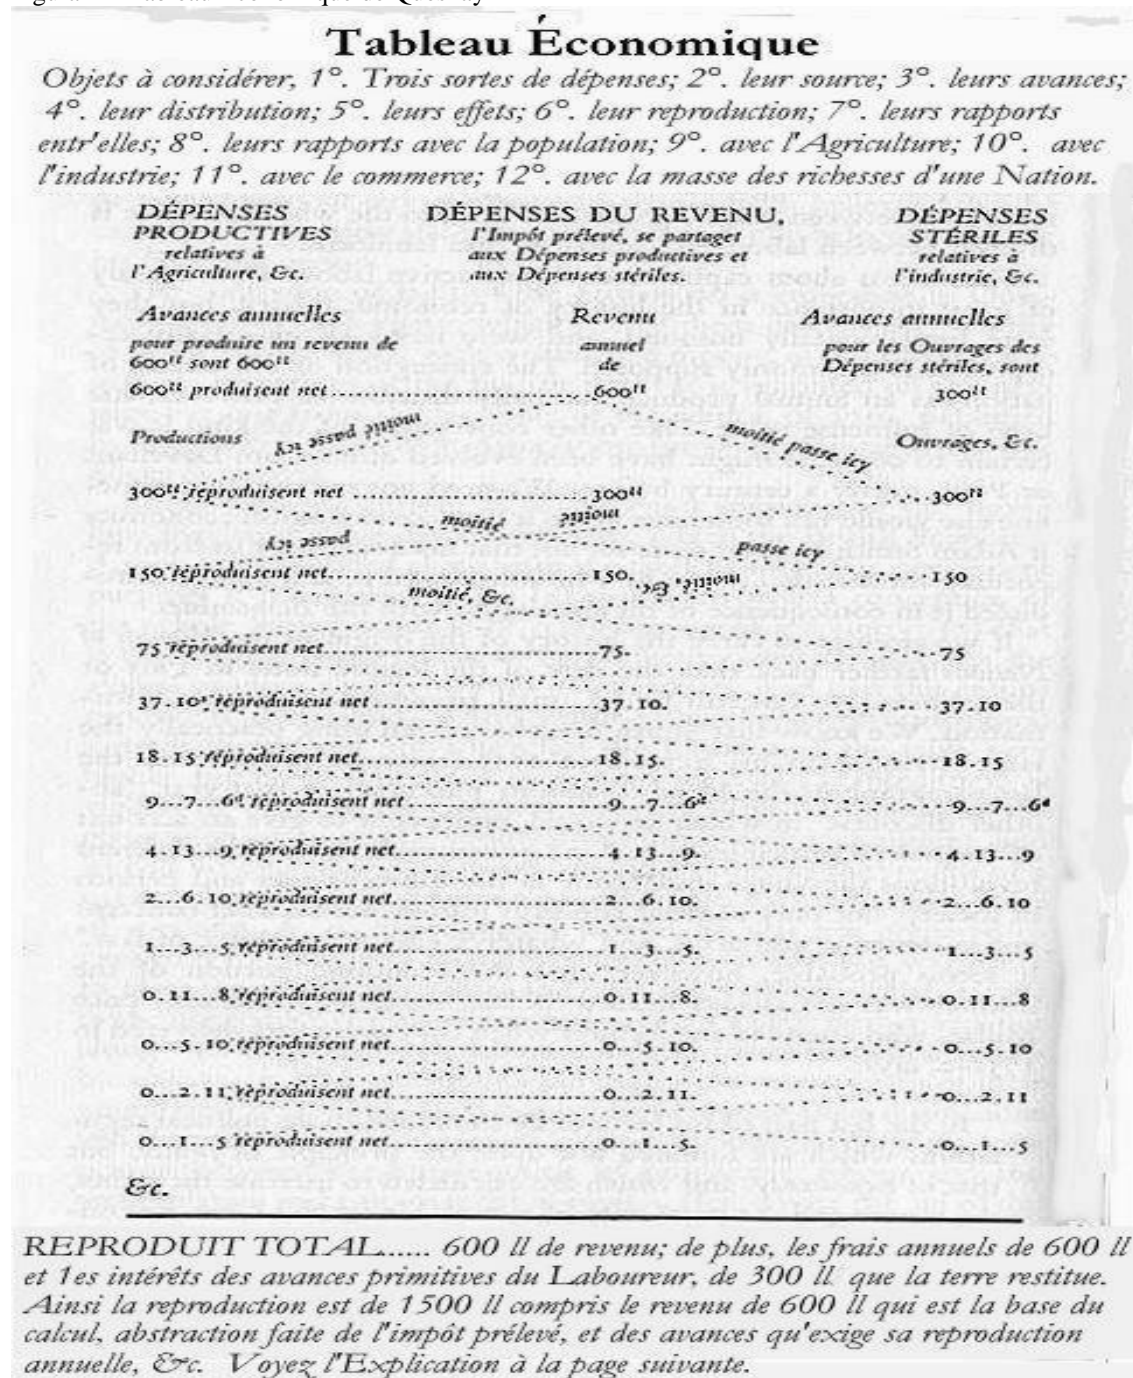 Tableau Économique
Objets à considérer, 1°. Trois sortes de dépenses; 2°. leur source; 3°. leurs avances;
4°. leur distribution; 5°. leurs effets; 6°. leur reproduction; 7°. leurs rapports
entr'elles; 8°. leurs rapports avec la population; 9°. avec l'Agriculture; 10°. avec
l'industrie; 11°. avec le commerce; 12°. avec la masse des richesses d'une Nation.
DÉPENSES
PRODUCTIVES
relatives à
l'Agriculture, &c.
DÉPENSES DU REVENU,
l'Impôt prélevé, se partaget
aux Dépenses productives et
aux Dépenses stériles.
DÉPENSES
STÉRILES
relatives à
l'industrie, &c.
Avances annuelles
pour produire un revenu de
600ll sont 600ll
Revenu
annuel
de
Avances annuelles
pour les Ouvrages des
Dépenses stériles, sont
600ll produisent net....................600ll 300ll
Productions moitié passe icy moitié passe icy Ouvrages, &c.
300ll reproduisent net ....................300ll 300ll
moitié passe icy moitié passe icy
150 reproduisent net....................150. 150
moitié, &c. moitié, &c.
75 reproduisent net....................75. 75
37.10s reproduisent net....................37.10. 37.10
18.15 reproduisent net....................18.15. 18.15
9...7...6d reproduisent net....................9...7...6d 9...7...6d
4.13...9 reproduisent net....................4.13...9. 4.13...9
2...6.10 reproduisent net....................2...6.10. 2...6.10
1...3...5 reproduisent net....................1...3...5. 1...3...5
0.11...8 reproduisent net....................0.11...8. 0.11...8
0...5.10 reproduisent net....................0...5.10. 0...5.10
0...2.11 reproduisent net....................0...2.11. 0...2.11
0...1...5 reproduisent net....................0...1...5. 0...1...5
&c.
REPRODUIT TOTAL..... 600 ll de revenu; de plus, les frais annuels de 600 ll
et 1es intérêts des avances primitives du Laboureur, de 300 ll que la terre restitue.
Ainsi la reproduction est de 1500 ll compris le revenu de 600 ll qui est la base du
calcul, abstraction faite de l'impôt prélevé, et des avances qu'exige sa reproduction
annuelle, &c. Voyez l'Explication à la page suivante.